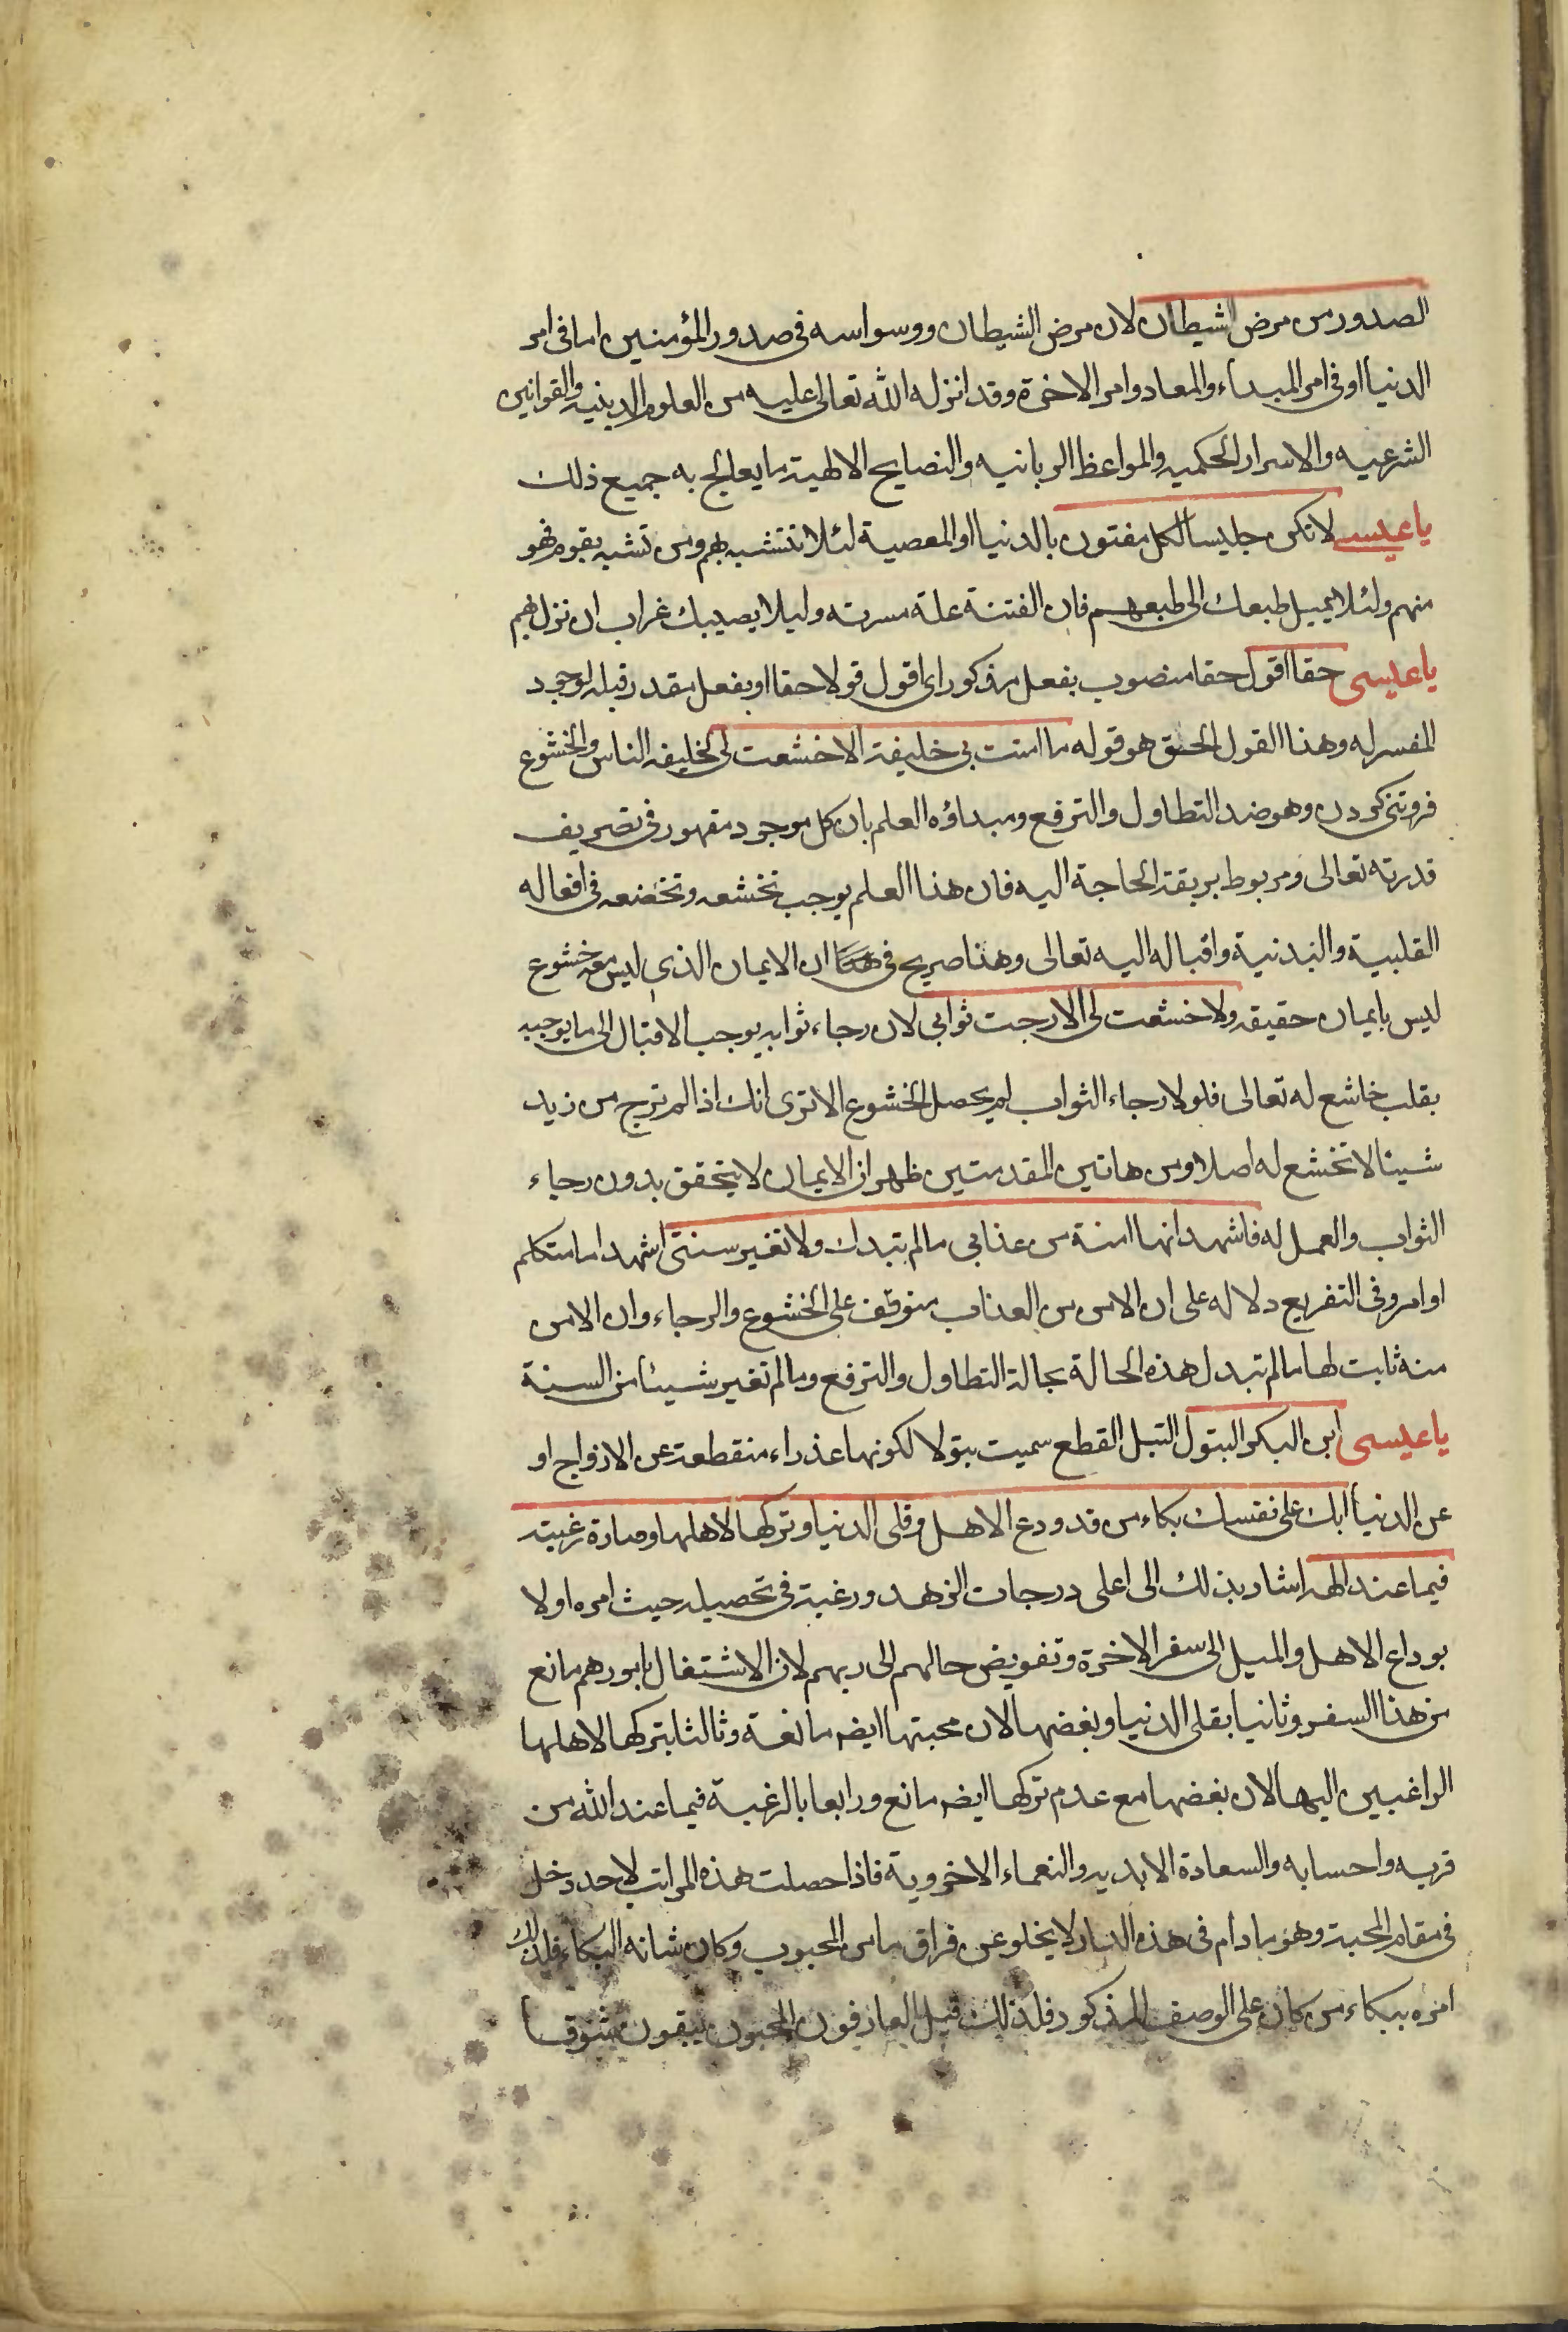 الصدور من مرض الشيطان لان مرض الشيطان ووسواسه فى صدور المؤمنين اما فى امر
الدنيا او فى امر المبداء والمعاد وامر الاخرة وقد انزله الله تعالى عليه من العلوم الدينيه والقوانين
الشرعيه والاسرار الحكميه والمواعظ الربانيه والنصايح الالهية ما يعالج به جميع ذلك
يا عيسى لا تكن جليسا لكل مفتون بالدنيا او المعصية لئلا تتشبه بهم ومن تشبه بقوم فهو
منهم ولئلا يميل طبعك الى طبعهم فان الفتنة علة مسرته وليلا يصيبك غراب ان نزل بهم
يا عيسى حقا اقول حقا منصوب بفعل مذكور اى اقول قولا حقا او بفعل مقدر قبله لوجود
المفسر له وهذا القول الحق هو قوله ما امنت بى خليقة الا خشعت لى الخليقه الناس والخشوع
فروتنى كردن وهو ضد التطاول والترفع ومبداؤه العلم بان كل موجود مقهور فى تصريف
قدرته تعالى ومربوط بربقة الحاجة اليه فان هذا العلم يوجب تخشعه وتخضعه فى افعاله
القلبية والبدنية واقباله اليه تعالى وهذا صريح فى ان الايمان الذى ليس معه خشوع
ليس بايمان حقيقه ولا خشعت لى الا رجت ثوابى لان رجاء ثوابه يوجب الاقبال الى ما يوجبه
بقلب خاشع له تعالى فلولا رجاء الثواب لم يحصل الخشوع الا ترى انك اذا لم ترج من زيد
شيئا لا تخشع له اصلا ومن هاتين المقدمتين ظهر ان الايمان لا يتحقق بدون رجاء
الثواب والعمل له فاشهد انها امنة من عذابى ما لم تبدل ولا تغير سنتى اشهد اما متكلم
او امر وفى التفريع دلاله على ان الامن من العذاب متوقف على الخشوع والرجاء وان الامن
منه ثابت لها ما لم تبدل هذه الحالة بحالة التطاول والترفع وما لم تغير شيئا من السنة
يا عيسى ابن البكر البتول التبل القطع سميت بتولا لكونها عذراء منقطعة عن الازواج او
عن الدنيا ابك على نفسك بكاء من قد ودع الاهل وقلى الدنيا وتركها لاهلها وصارة رغبته
فيما عند الهه اشار بذلك الى اعلى درجات الزهد ورغبة فى تحصيله حيث امره اولا
بوداع الاهل والميل الى سفر الاخرة وتفويض حالهم الى ربهم لان الاشتغال بامورهم مانع
من هذا السفر وثانيا بقلى الدنيا وبغضها لان محبتها ايضه مانعة وثالثا بتركها لاهلها
الراغبين اليها لان بغضها مع عدم تركها ايضه مانع ورابعا بالرغبة فيما عند الله من
قربه واحسابه والسعادة الابديه والنعماء الاخروية فاذا حصلت هذه المراتب لاحد دخل
فى مقام المحبة وهو ما دام فى هذه الدار لا يخلو عن فراق ما من المحبوب وكان شانه البكاء فلذلك
امره ببكاء من كان على الوصف المذكور فلذلك قيل العارفون المحبون يبقون شوقا